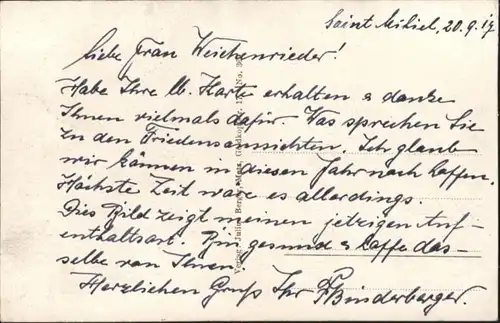 Saint Mihiel, 20.9.17
Liebe Frau Weichenrieder!
Habe Ihre lb. Karte erhalten & danke
Ihnen vielmals dafür. Was sprechen Sie
zu den Friedensaussichten. Ich glaube
wir können in diesen Jahr noch hoffen.
Höchste Zeit wäre es allerdings.
Dies Bild zeigt meinen jetzigen Auf-
enthaltsort. Bin gesund & hoffe das-
selbe von Ihnen
Herzlichen Gruß Ihr Binderberger.
Verlag Julien Metz, No.